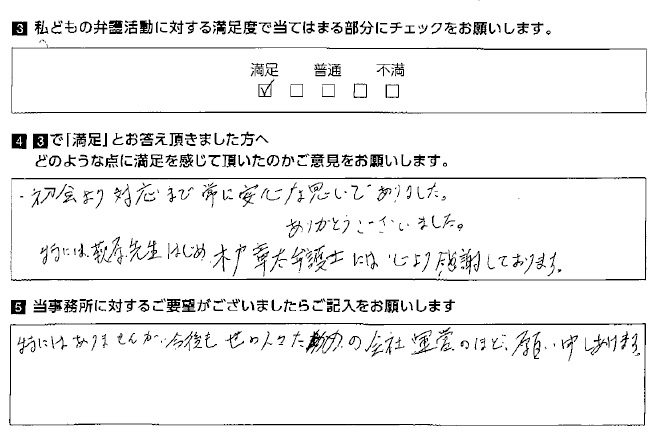 3 私どもの弁護活動に対する満足度で当てはまる部分にチェックをお願いします。
満足 普通 不満
4 3で「満足」とお答え頂きました方へ
どのような点に満足を感じて頂いたのかご意見をお願いします。
・初会より対応まで常に安心な思いでありました。
ありがとうございました。
特には萩原先生はじめ木戸章太弁護士には心より感謝しております。
5 当事務所に対するご要望がございましたらご記入をお願いします
特にはありませんが、今後も世の人々た の会社運営のほど、願い申しあげます。